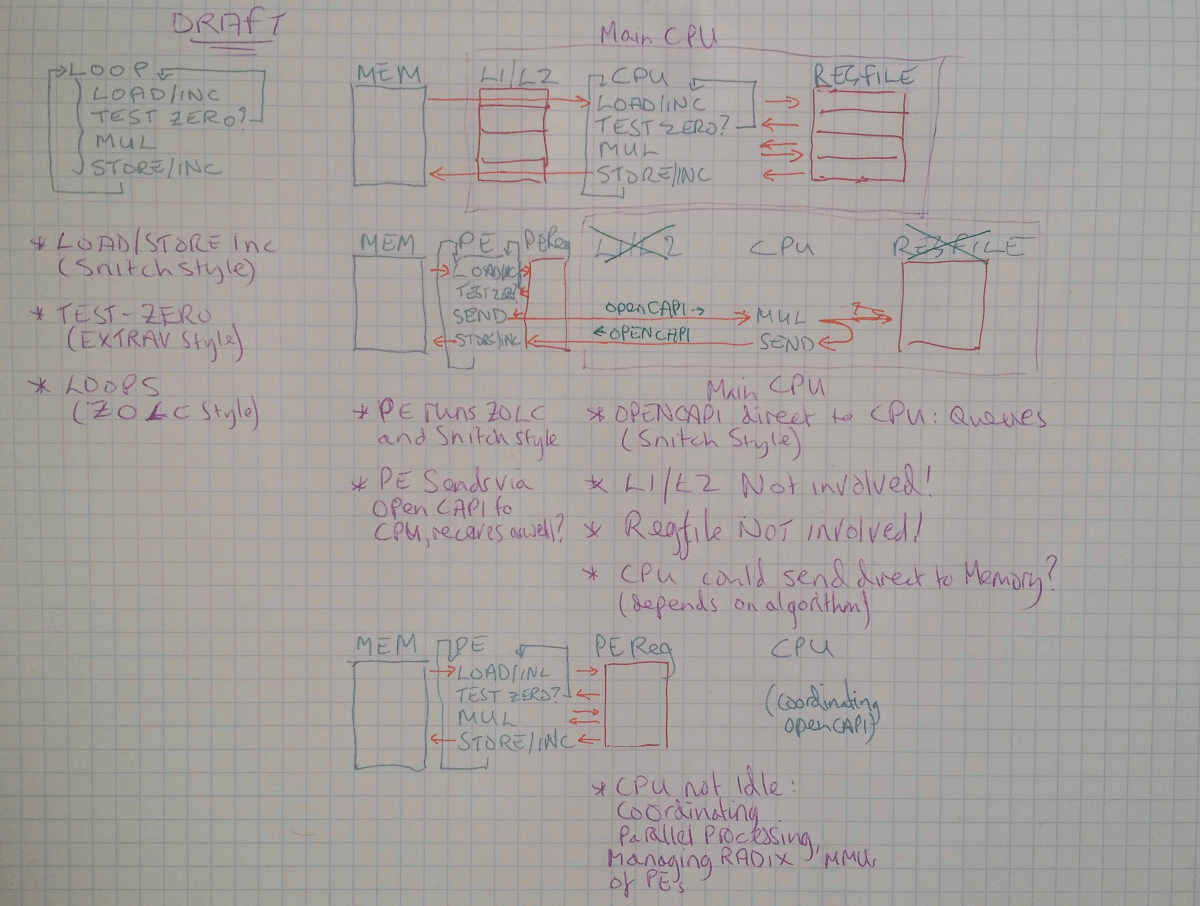 DRAFT
LOOP
LOAD/INC
TEST ZERO?
MUL
STORE/INC
Main CPU
MEM
L1/L2
CPU
REGFILE
LOAD/INC
TEST ZERO?
MUL
STORE/INC
* LOAD/STORE Inc
(Snitch Style)
* TEST-ZERO
(EXTRAV Style)
* LOOPS
(ZOLC Style)
MEM
PE
PEReg
L1/L2
CPU
REGFILE
LOAD/INC
TEST ZER?
SEND
STORE/INC
OpenCAPI →
← OPENCAPI
MUL
SEND
?
Main CPU
* PE runs ZOLC
and Snitch style
* PE Sends via
Open CAPI to
CPU, receives as well?
* OPENCAPI direct to CPU: Queues
(Snitch Style)
* L1/L2 Not involved!
* Regfile NOT involved!
* CPU could send direct to Memory?
(depends on algorithm)
MEM
PE
PE Reg
CPU
LOAD/INC
TEST ZERO?
MUL
STORE/INC
(coordinating
OpenCAPI)
* CPU not Idle:
Coordinating
Parallel Processing,
Managing RADIX MMU,
of PEs